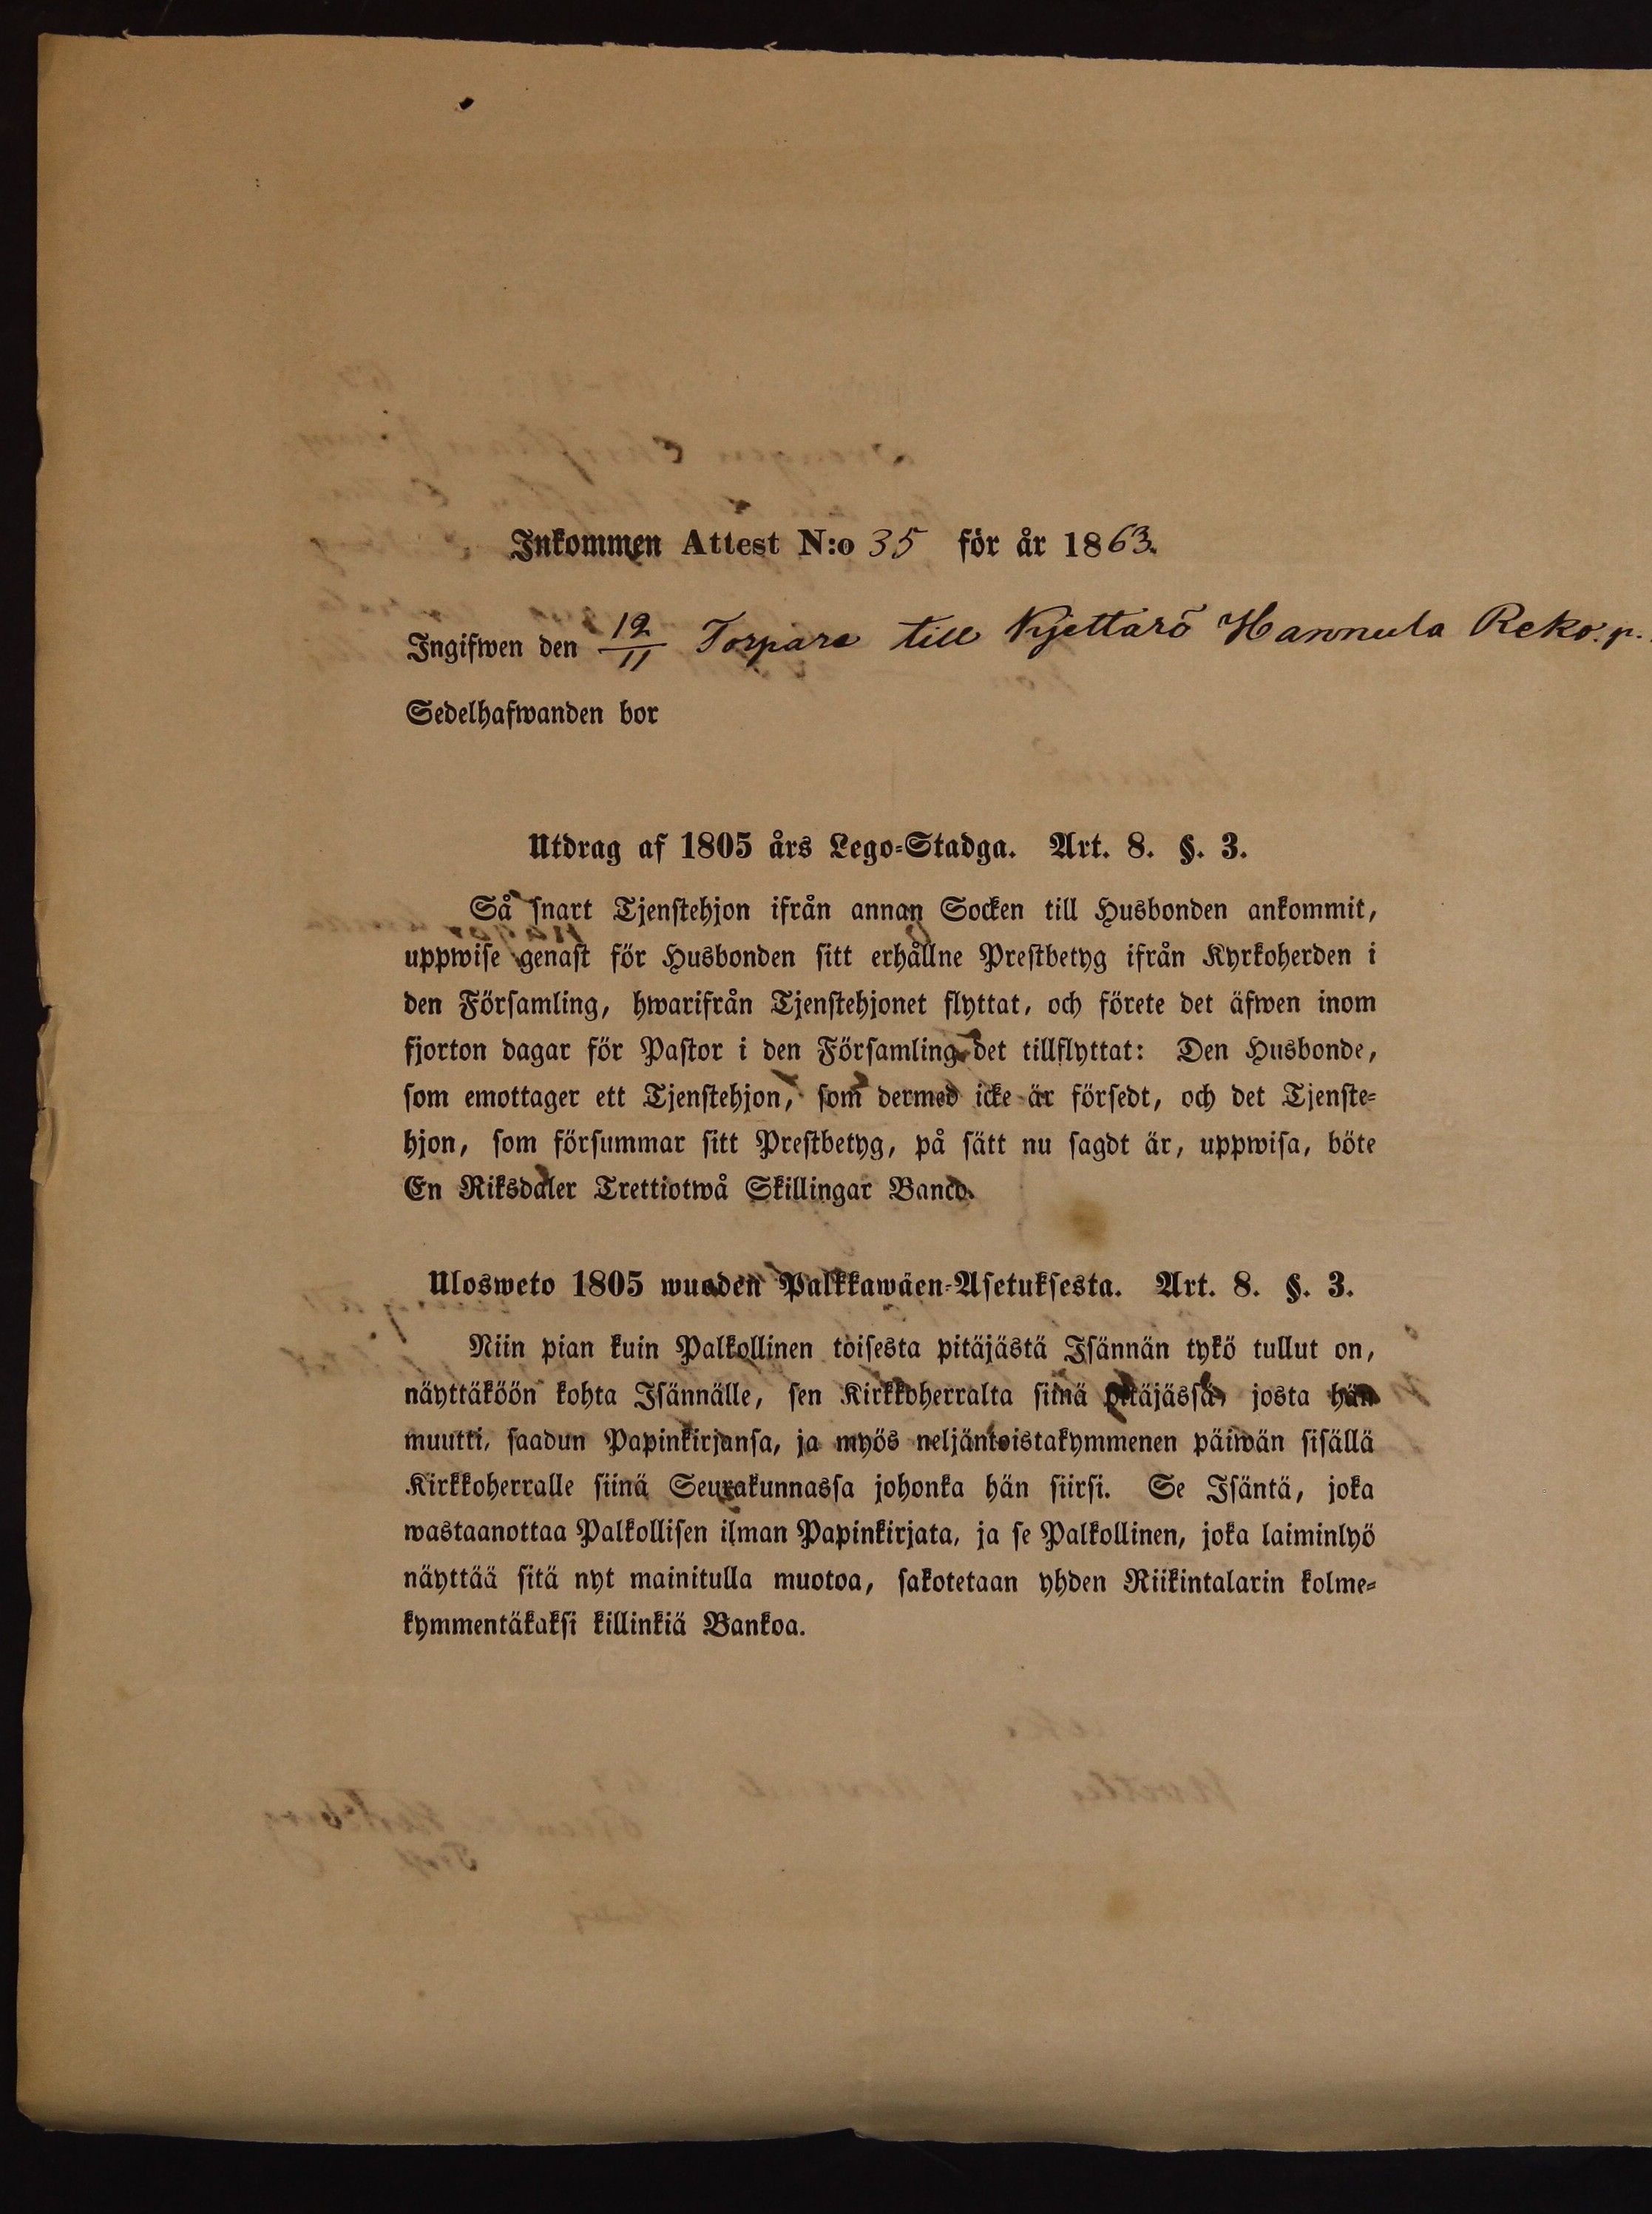 Inkommen Attest N:o 35 för år 1863.
Ingifwen den 12/11 Torpare till Kjettarö Hannula Reko. p.
Sedelhafwanden bor
Utdrag af 1805 års Lego-Stadga. Art. 8. §. 3.
Så snart Tjenstehjon ifrån annan Socken till Husbonden ankommit,
uppwise genast för Husbonden sitt erhållne Prestbetyg ifrån Kyrkoherden i
den Församling, hwarifrån Tjenstehjonet flyttat, och förete det äfwen inom
fjorton dagar för Pastor i den Församling det tillflyttat: Den Husbonde,
som emottager ett Tjenstehjon, som dermed icke är försedt, och det Tjenste-
hjon, som försummar sitt Prestbetyg, på sätt nu sagdt är, uppwisa, böte
En Riksdaler Trettiotwå Skillingar Banco.
Ulosweto 1805 wuoden Palkkawäen-Asetuksesta. Art. 8. §. 3.
Niin pian kuin Palkollinen toisesta pitäjästä Isännän tykö tullut on,
näyttäköön kohta Isännälle, sen Kirkkoherralta siinä pitäjässä, josta hän
muutti, saadun Papinkirjansa, ja myös neljäntoistakymmenen päiwän sisällä
Kirkkoherralle siinä Seurakunnassa johonka hän siirsi. Se Isäntä, joka
wastaanottaa Palkollisen ilman Papinkirjata, ja se Palkollinen, joka laiminlyö
näyttää sitä nyt mainitulla muotoa, sakotetaan yhden Riikintalarin kolme-
kymmentäkaksi killinkiä Bankoa.